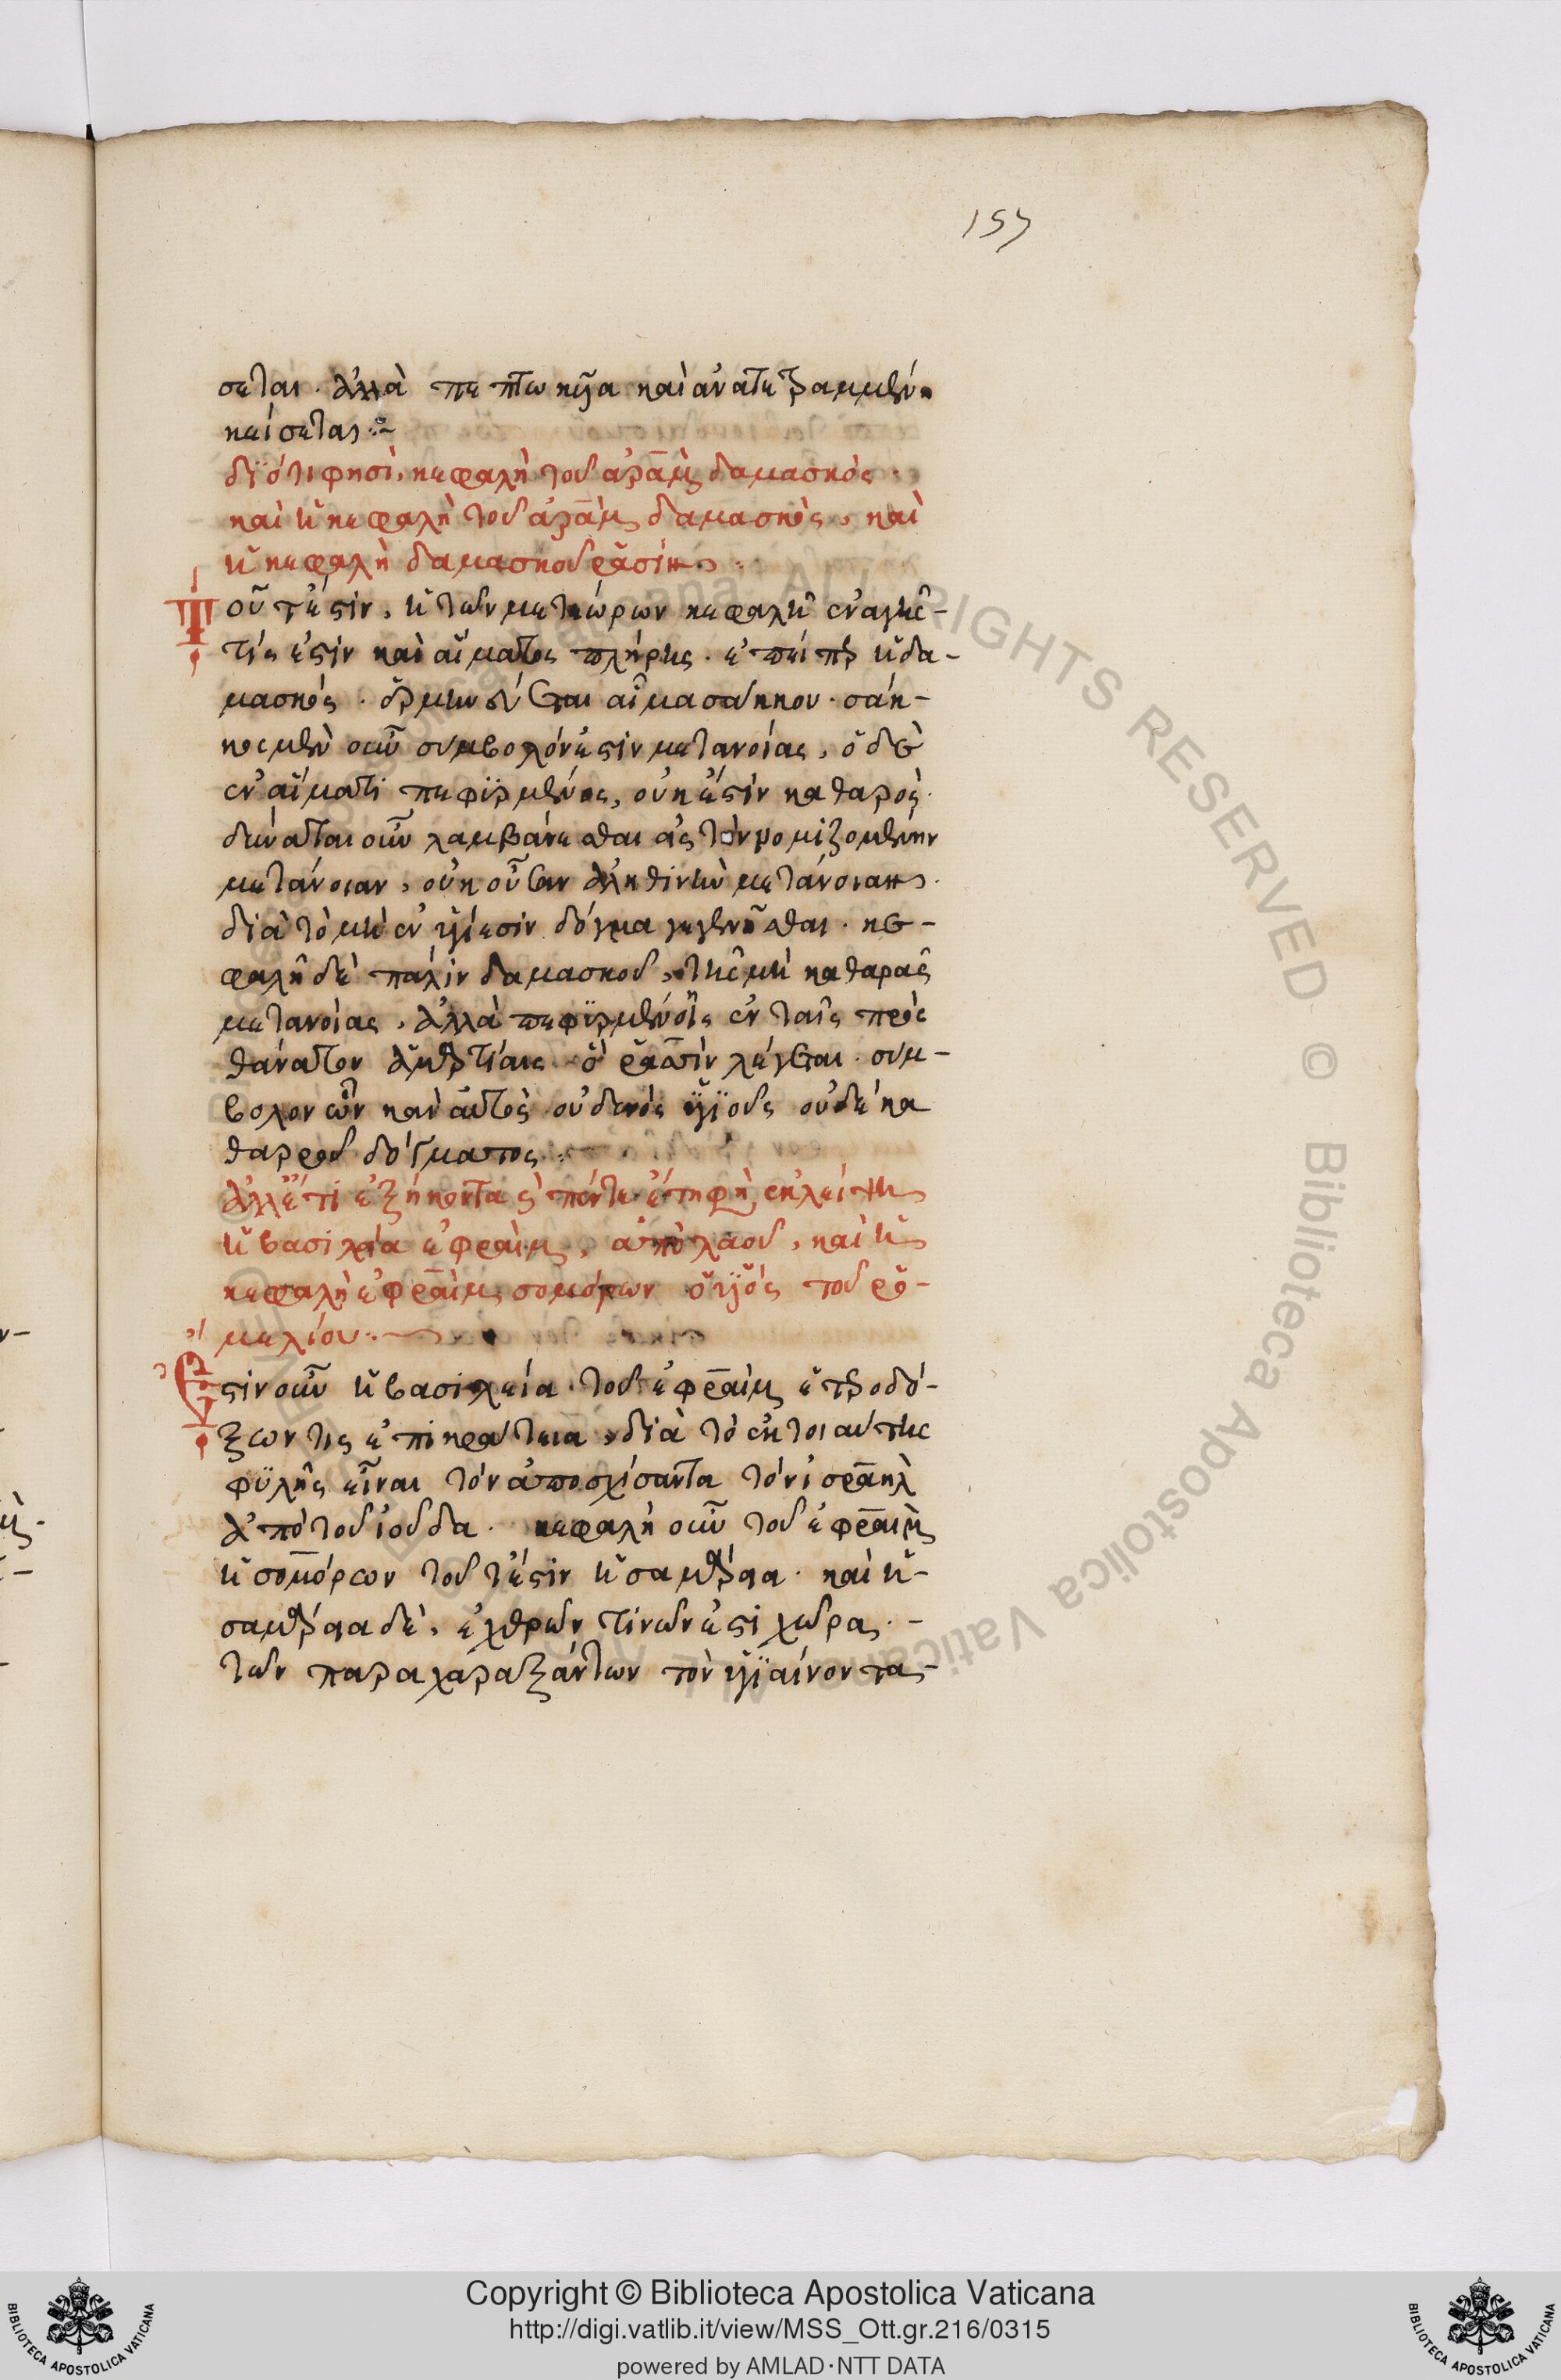 157
σεται. ἀλλὰ πεπτωκῦα καὶ ἀνατετραμμένη
κείσεται:~
διότι φησὶ, κεφαλὴ τοῦ ἀρὰμ δαμασκός.
καὶ ἡ κεφαλὴ τοῦ ἀρὰμ δαμασκὸς, καὶ
ἡ κεφαλὴ δαμασκοῦ ῥασίν.
Τουτέστιν, ἡ τῶν μετεώρων κεφαλὴ ἐναγής
τίς ἐστὶν καὶ αἵματος πλήρης. ἐπείπερ ἡ δα-
μασκός. ἑρμηνεύεται αἷμα σάκκου. σάκ-
κος μὲν οὖν σύμβολόν ἐστιν μετανοίας, ὁ δὲ
ἐν αἵματι πεφυρμένος, οὐκ ἔστιν καθαρὸς.
δύναται οὖν λαμβάνεσθαι εἰς τὴν νομιζομένην
μετάνοιαν, οὐκ οὖσαν ἀληθινὴν μετάνοιαν.
διὰ τὸ μὴ ἐν ὑγιέσιν δόγμα γεγενῆσθαι. κε-
φαλὴ δὲ πάλιν δαμασκοῦ, τῆς μὴ καθαρᾶς
μετανοίας, ἀλλὰ πεφυρμένοις ἐν ταῖς πρὸς
θάνατον ἁμαρτίαις ὁ ῥασὶν λέγεται. συμ-
βολον ὢν καὶ αὐτὸς οὐδενός ὑγιοῦς οὐδὲ κα
θαροῦ δόγματος.
ἀλλ' ἔτι ἑξήκοντα καὶ πέντε ἔτη φησὶ ἐκλείψει
ἡ βασιλεία ἐφραὶμ, ἀπὸ λαοῦ, καὶ ἡ
κεφαλὴ ἐφραὶμ σομόρων ὁ υἱός τοῦ ῥο-
μελίου.
Ἔστιν οὖν ἡ βασιλεία τοῦ ἐφραὶμ ἑτεροδό-
ξων τις ἐπικράτεια, διὰ τὸ ἐκ τοιαύτης
φυλῆς εἶναι τὸν ἀποσχίσαντα τὸν ἰσραηλ
ἀπὸ τοῦ ἰούδα. κεφαλὴ οὖν τοῦ ἐφραὶμ
ἡ σομόρων τουτέστιν ἡ σαμάρεια. καὶ ἡ
σαμάρεια δὲ, ἐχθρῶν τινῶν ἐστὶ χώρα.
τῶν παραχαραξάντων τὸν ὑγιαίνοντα
Copyright © Biblioteca Apostolica Vaticana
http://digi.vatlib.it/view/MSS_Ott.gr.216/0315
powered by AMLAD·NTT DATA